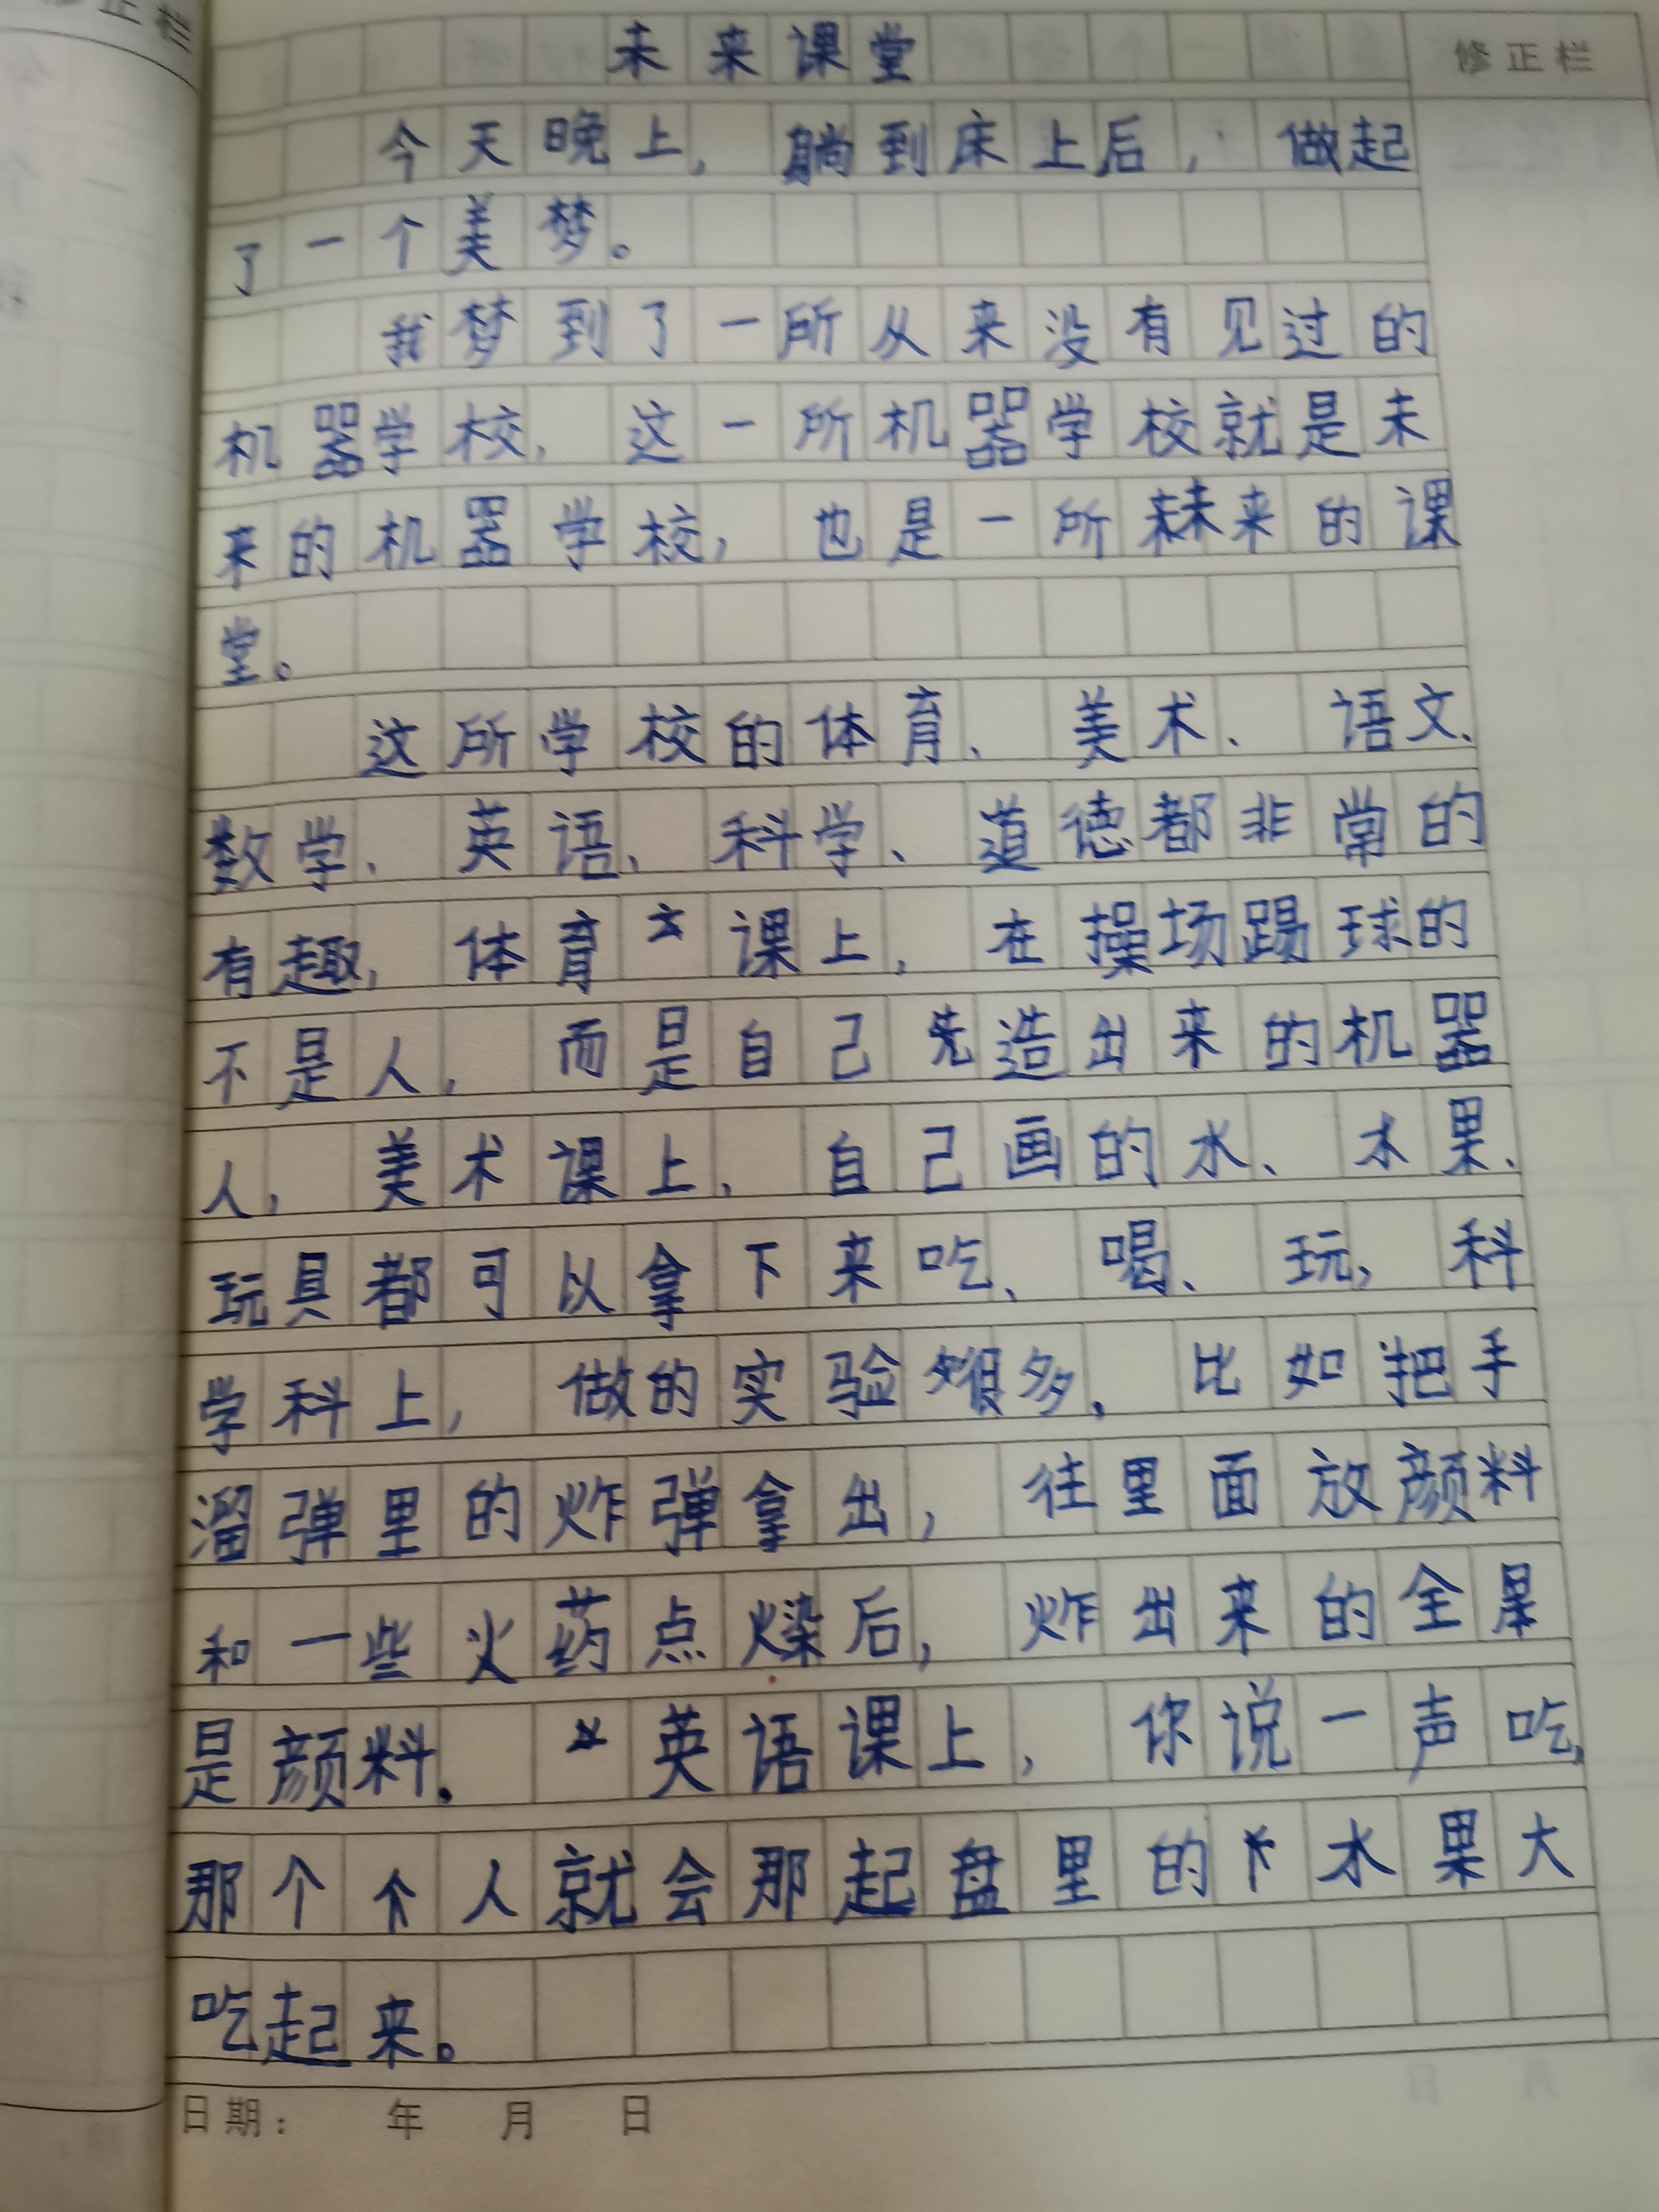 修正栏
未来课堂
修正栏
今天晚上，躺到床上后，做起
了一个美梦。
我梦到了一所从来没有见过的
机器学校，这一所机器学校就是未
来的机器学校，也是一所未来的课
堂。
这所学校的体育、美术、语文、
数学、英语、科学、道德都非常的
有趣，体育课上，在操场踢球的
不是人，而是自己先造出来的机器
人，美术课上，自己画的水、水果、
玩具都可以拿下来吃、喝、玩，科
学科上，做的实验很多，比如把手
溜弹里的炸弹拿出，往里面放颜料
和一些火药点燥后，炸出来的全是
是颜料。英语课上，你说一声吃，
那个人就会那起盘里的水果大
吃起来。
日期：　年　月　日